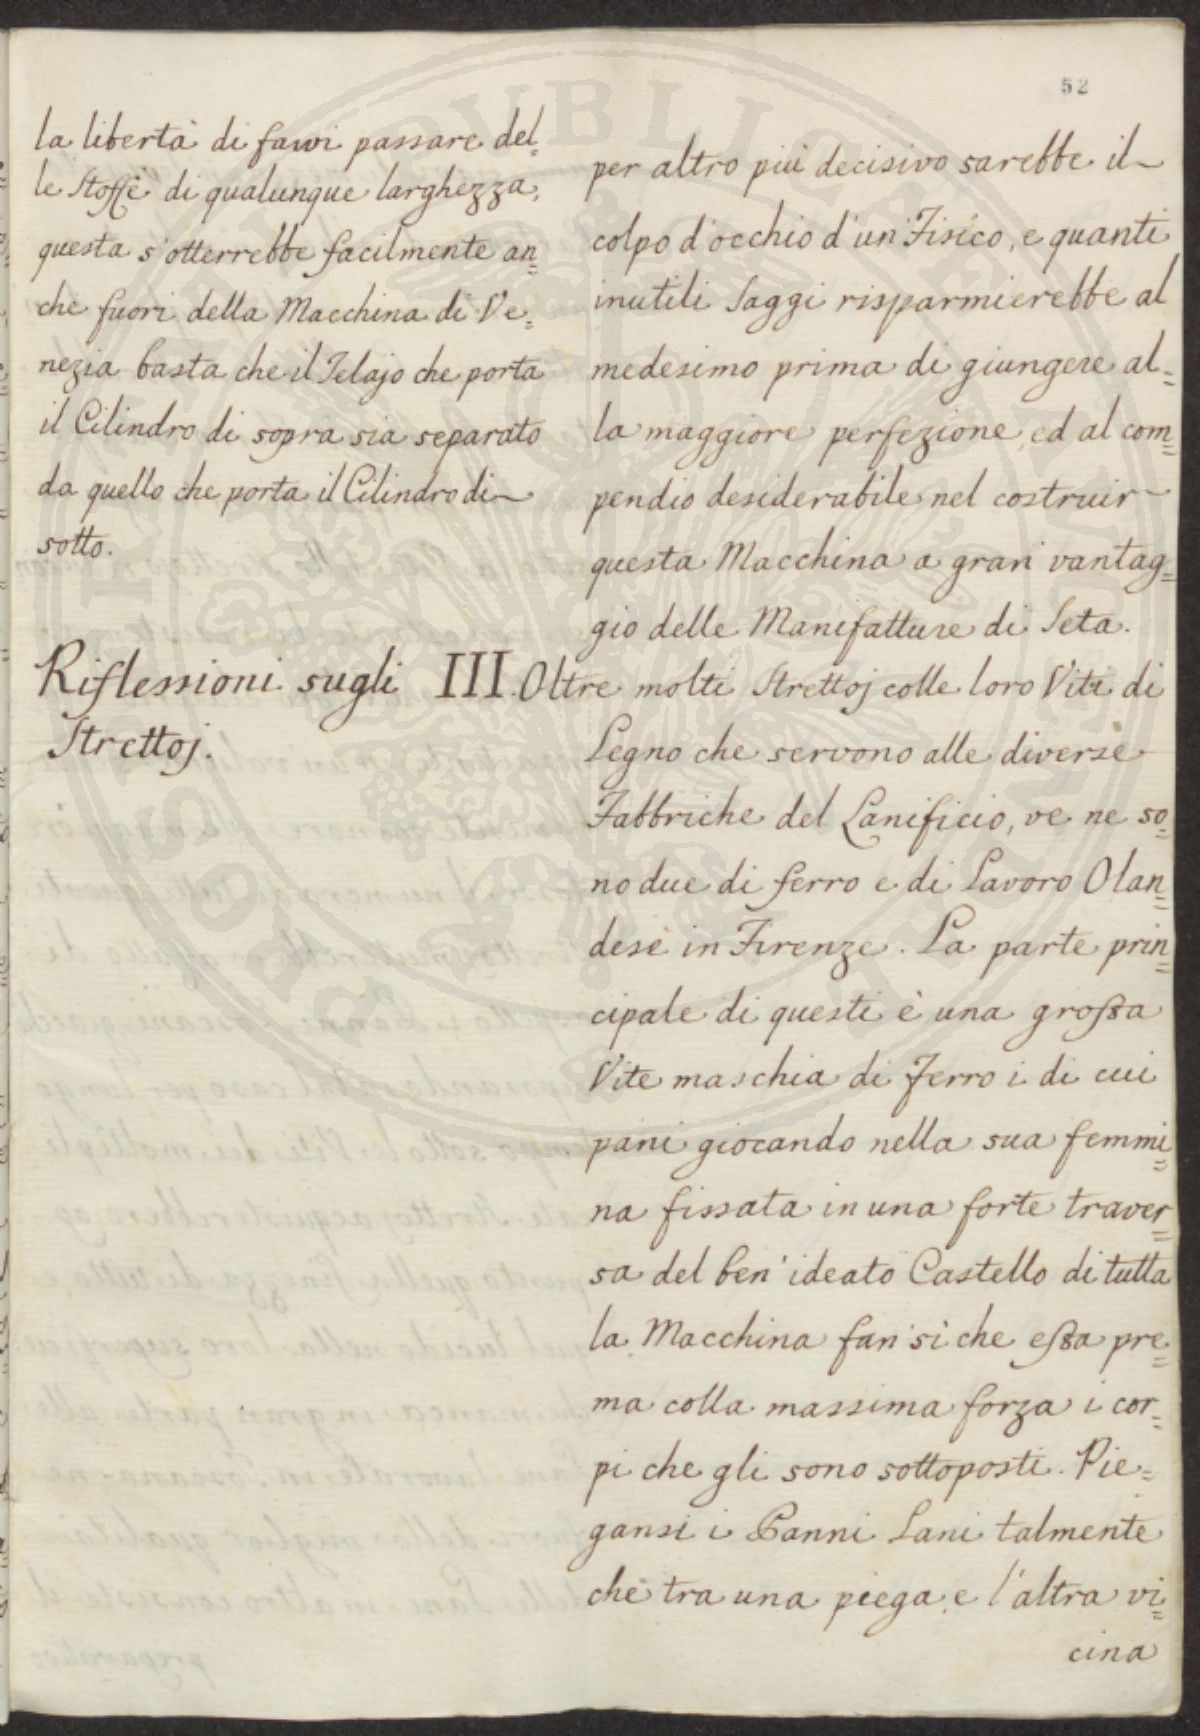 52
la libertà di farvi passare del=
le Stoffe di qualunque larghezza,
questa s'otterrebbe facilmente an=
che fuori della Macchina di Ve=
nezia basta che il Telajo che porta
il Cilindro di sopra sia separato
da quello che porta il Cilindro di
sotto.
Riflessioni sugli
Strettoj.
per altro più decisivo sarebbe il
colpo d'occhio d'un Fisico, e quanti
inutili Saggi risparmierebbe al
medesimo prima di giungere al=
la maggiore perfezione, ed al com=
pendio desiderabile nel costruir
questa Macchina a gran vantag=
gio delle Manifatture di Seta.
III. Oltre molti Strettoj colle loro Viti di
Legno che servono alle diverse
Fabbriche del Lanificio, ve ne so=
no due di ferro e di Lavoro Olan=
dese in Firenze. La parte prin=
cipale di questi è una grossa
Vite maschia di Ferro i di cui
pani giocando nella sua femmi=
na fissata in una forte traver=
sa del ben' ideato Castello di tutta
la Macchina fan sì che essa pre=
ma colla massima forza i cor=
pi che gli sono sottoposti. Pie=
gansi i Panni Lani talmente
che tra una piega, e l'altra vi=
cina